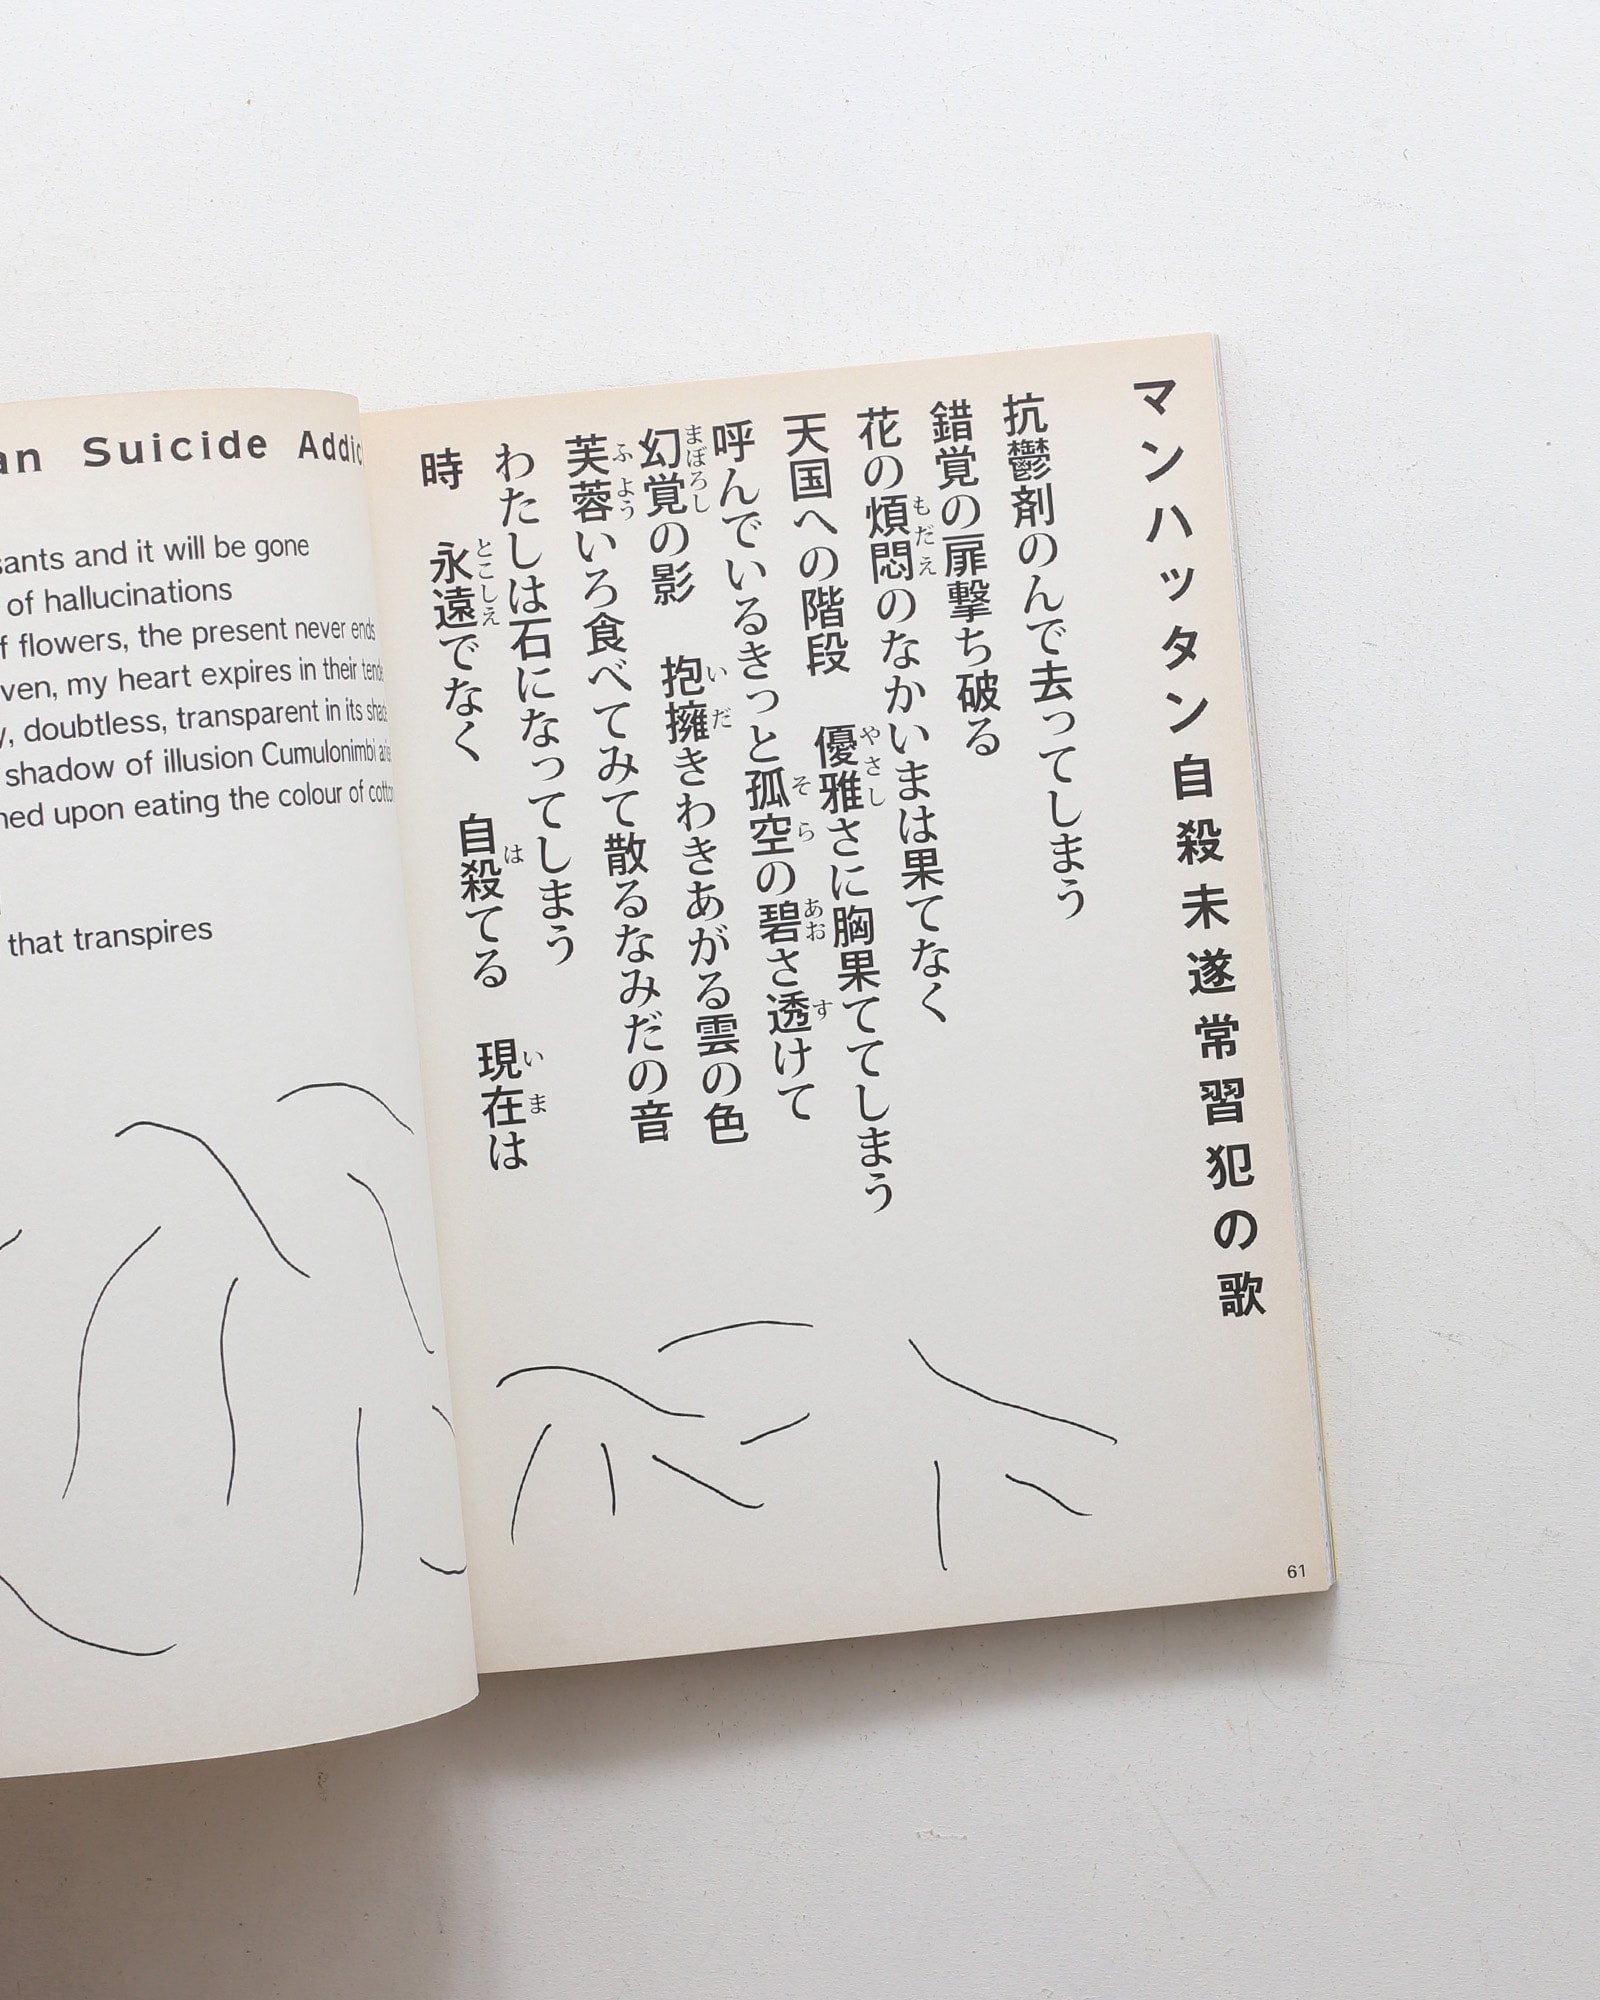 an Suicide Addic
sants and it will be gone
of hallucinations
f flowers, the present never ends
ven, my heart expires in their tende
y, doubtless, transparent in its shade
shadow of illusion Cumulonimbi arise
ned upon eating the colour of cotton
that transpires
マンハッタン自殺未遂常習犯の歌
抗鬱剤のんで去ってしまう
錯覚の扉撃ち破る
花の煩悶のなかいまは果てなく
もだえ
天国への階段 優雅さに胸果ててしまう
やさし
呼んでいるきっと孤空の碧さ透けて
そら あお す
幻覚の影 抱擁きわきあがる雲の色
まぼろし いだ
芙蓉いろ食べてみて散るなみだの音
ふよう
わたしは石になってしまう
時 永遠でなく 自殺てる 現在は
とこしえ は いま
61